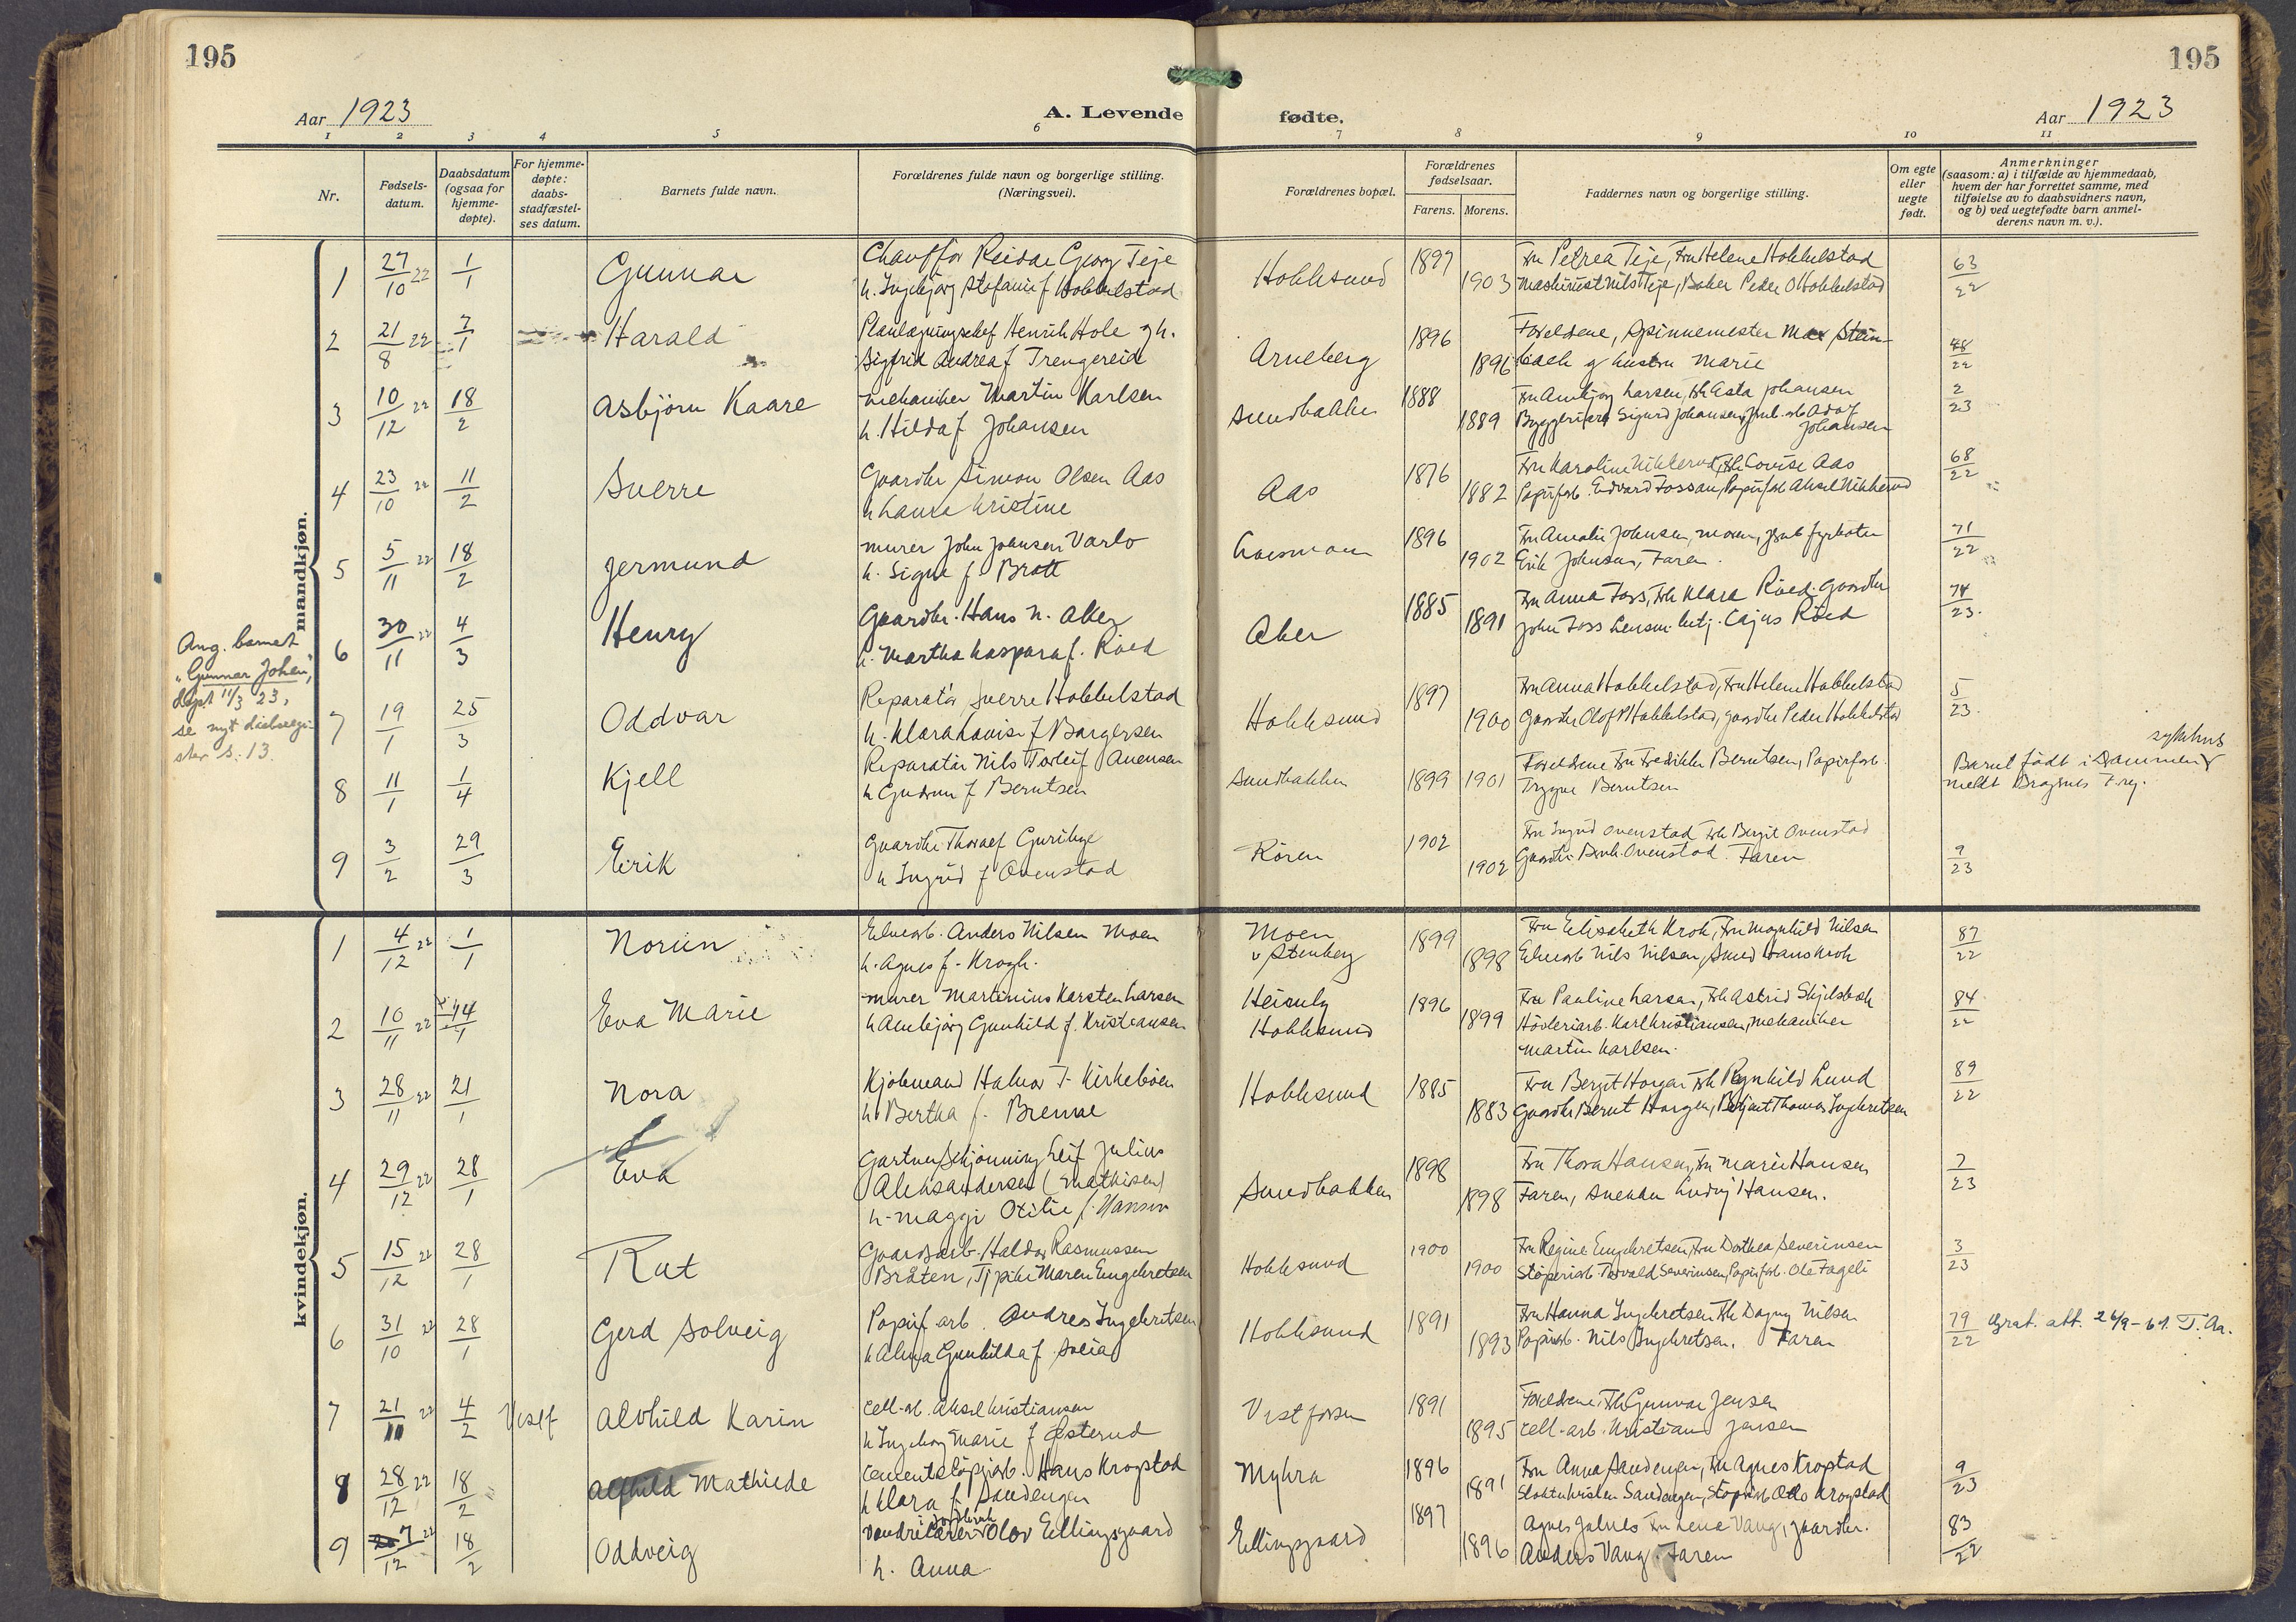 195
195
Aar 1923
A. Levende fødte.
Aar 1923
1 2 3 4 5 6 7 8 9 10 11
Nr.
Fødsels-
datum.
Daabsdatum
(ogsaa for
hjemme-
døpte).
For hjemme-
døpte:
daabs-
stadfæstel-
ses datum.
Barnets fulde navn.
Forældrenes fulde navn og borgerlige stilling.
(Næringsvei).
Forældrenes bopæl.
Forældrenes
fødselsaar.
Farens. Morens.
Faddernes navn og borgerlige stilling.
Om egte
eller
uegte
født.
Anmerkninger
(saasom: a) i tilfælde av hjemmedaab,
hvem der har forrettet samme, med
tilføielse av to daabsvidners navn,
og b) ved uegtefødte barn anmel-
derens navn m. v.).
mandkjøn.
1 27/10 22 1/1 Gunnar
Chauffør Reidar Georg Teje
h. Ingebjørg Stefanie f Hokkelstad
Hokksund 1897 1903
Fru Petrea Teje, Fru Helene Hokkelstad
Maskinist Nils Teje, Baker Peder O Hokkelstad
63/22
2 21/8 22 7/1 Harald
Planlægningschef Henrik Hole g h.
Sigfrid Andrea f Trengereid
Arneberg 1896 1896
Foreldrene, Spinnemester Max Stein-
bach g hustru Marie
48/22
3 10/12 22 18/2 Asbjørn Kaare
Mekaniker Martin Karlsen
h. Hilda f Johansen
Sundbakken 1888 1889
Fru Annbjørg Larsen, Frk Asta Johansen
Sigurd Johansen, Adolf
Johansen
2/23
4 23/10 22 11/2 Sverre
Gaardbr Simon Olsen Aas
h Laura Kristine
Aas 1876 1882
Fru Karoline Nikkerud, Frk Lovise Aas
Papirfarb. Edvard Fossan, Papirfarb Aksel Nikkerud
68/22
5 5/11 22 18/2 Jermund
Murer John Johnsen Varlo
h. Signe f. Bratt
1896 1902
Fru Amalie Johnsen, Moren, fyrbøter
Erik Johnsen, Faren.
71/22
Ang. barnet
"Gunnar Johen",
døpt 11/3 23,
se nyt dielsregi-
ster s. 13.
6 30/11 22 4/3 Henry
Gaardbr. Hans N. Aker
h. Martha Kaspara f. Røed
Aker 1885 1891
Fru Anna Foss, Frk Klara Røed. Gaardbr
John Foss Lensm. betj. Cajus Røed
74/23.
7 19/1 25/3 Oddvar
Reparatør Sverre Hokkelstad
h. Klara Lovise f Borgersen
Hokksund 1897 1900
Fru Anna Hokkelstad, Fru Helene Hokkelstad
Gaardbr Olof P Hokkelstad, gaardbr Peder Hokkelstad
5/23.
8 11/1 1/4 Kjell
Reparatør Nils Torleif Anensen
h Gudrun f Berntsen
Sundbakken 1899 1901
Foreldrene Fru Fredikke Berntsen, Papirfarb.
Trygve Berntsen
sykehus
Barnet født i Drammen
meldt Bragnes F.reg.
9 3/2 29/3 Eirik
Gaardbr. Thoralf Guribye
h Ingrid f Ovenstad
Røren 1902 1902
Fru Ingrid Ovenstad Frk Bergit Ovenstad
Gaardbr. Ovenstad. Faren
9/23
kvindekjøn.
1 4/12 22 1/1 Norun
Elvearb. Anders Nilsen Moen
h. Agnes f. Krogh.
Moen
v Stenberg 1899 1898
Fru Elisabeth Kroh, Fru Magnhild Nilsen
Elvearb Nils Nilsen, Smed Hans Kroh
87/22
2 10/11 22 14/1 Eva Marie
Murer Martinius Karsten Larsen
h Annbjørg Gunhild f. Kristiansen
Heimly
Hokksund 1896 1899
Fru Pauline Larsen, Frk Astrid Skjelsbæk
Høvleriarb. Karl Kristiansen, Mekaniker
Martin Karlsen.
84/22
3 28/11 22 21/1 Nora
Kjøbmand Halvor T. Kirkebøen
h. Bertha f. Bremne
Hokksund 1885 1883
Fru Bergit Horgen Frk Ragnhild Lund
Gaardbr Bernt Horgen, Betjent Thomas Ingebretsen
89/22
4 29/12 22 28/1 Eva
Gartner Schjønning Leif Julius
Aleksandersen (Mathisen)
h. Maggi Otilie f. Hansen
Sundbakken 1898 1898
Fru Thora Hansen, Fru Marie Hansen
Faren, Snekker Ludvig Hansen.
7/23
5 15/12 22 28/1 Rut
Gaardsarb. Haldor Rasmussen
Bråten, Tj pike Maren Engebretsen
Hokksund 1900 1900
Fru Regine Engebretsen, Fru Dorthea Severinsen
Støperiarb. Torvald Severinsen, Papirfarb. Ole Fageli
3/23
6 31/10 22 28/1 Gerd Solveig
Papirf arb. Andres Ingebretsen
h Alma Gunhilda f. Sveia
Hokksund 1891 1893
Fru Hanna Ingebretsen Frk Dagny Nilsen
Papirarb. Nils Ingebretsen. Faren
79/22 Grat. att. 26/9-61. T.Aa.
7 21/11 22 4/2 Vestf Alvhild Karin
Cell-arb. Aksel Kristiansen
h Ingeborg Marie f Østerud
Vestfossen 1891 1895
Foreldrene, Frk Gunvor Jensen
Cell-arb. Kristian Jensen
8 28/12 22 18/2 Alfhild Mathilde
Cementstøperiarb. Hans Krogstad
h Klara f Sandengen
Myhra 1896 1891
Fru Anna Sandengen, Fru Agnes Krogstad
Slakter Kristen Sandengen, Støperiarb Odo Krogstad
9/23
9 7/12 22 18/2 Oddveig
Vandrelærer i jordbruk Olov Ellingsgaard
h. Anna
Ellingsgaard 1897 1896
Agnes Jalnes Fru Lene Vang, gaardbr.
Anders Vang. Faren
83/22